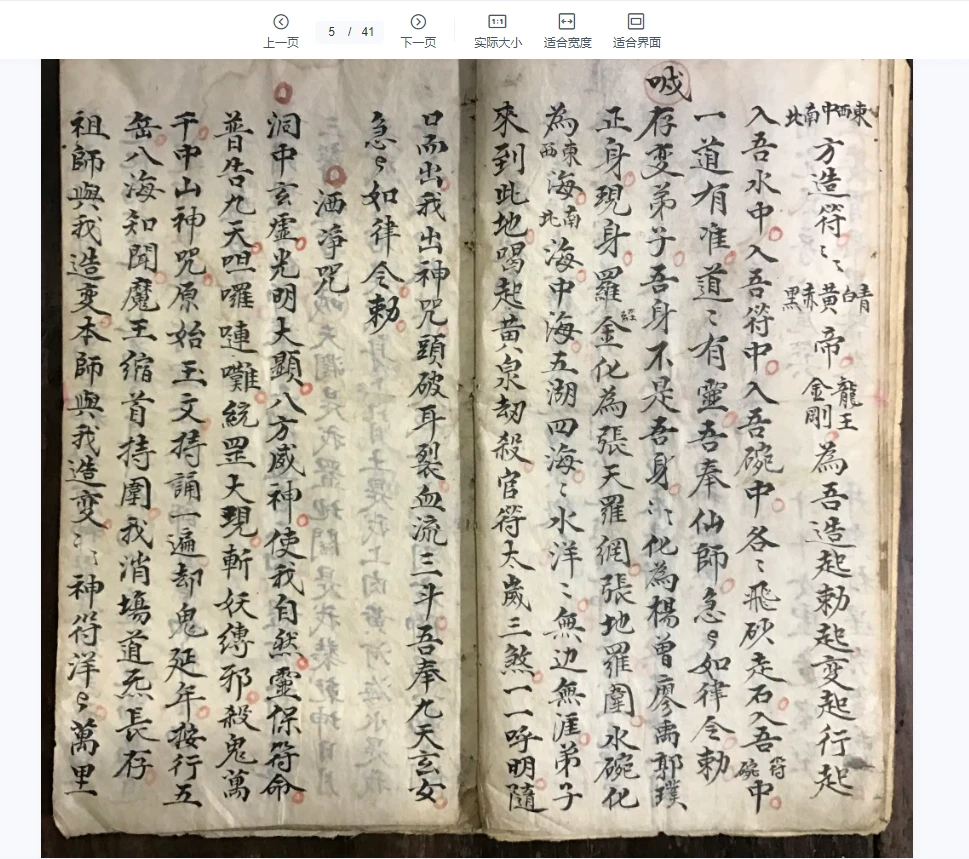 上一页
5 / 41
下一页
1:1
实际大小
适合宽度
适合界面
東西中南北方造符〻〻青白黃赤黑帝龍王金剛為吾造起勅起变起行起
入吾水中入吾符中入吾碗中各〻飛砂走石入吾符碗中
一道有准道〻有靈吾奉仙師急〻如律令勅
存变弟子吾身不是吾身〻〻化為楊曾廖禹郭璞
正身現身羅金化為張天羅網張地羅圍水碗化
為東西海南北海中海五湖四海〻水洋〻無边無涯弟子
來到此地喝起黃泉劫殺官符太歲三煞一一呼明隨
口而出我出神咒頭破耳裂血流三斗吾奉九天玄女
急〻如律令勅
洒淨咒
洞中玄虛光明大顯八方威神使我自然靈保符命
普告九天呾囉嗹囋統罡大現斬妖縛邪殺鬼萬
千中山神咒原始玉文持誦一遍却鬼延年按行五
岳八海知聞魔王縮首持圍我消塲道炁長存
祖師與我造变本師與我造变〻〻神符洋〻萬里